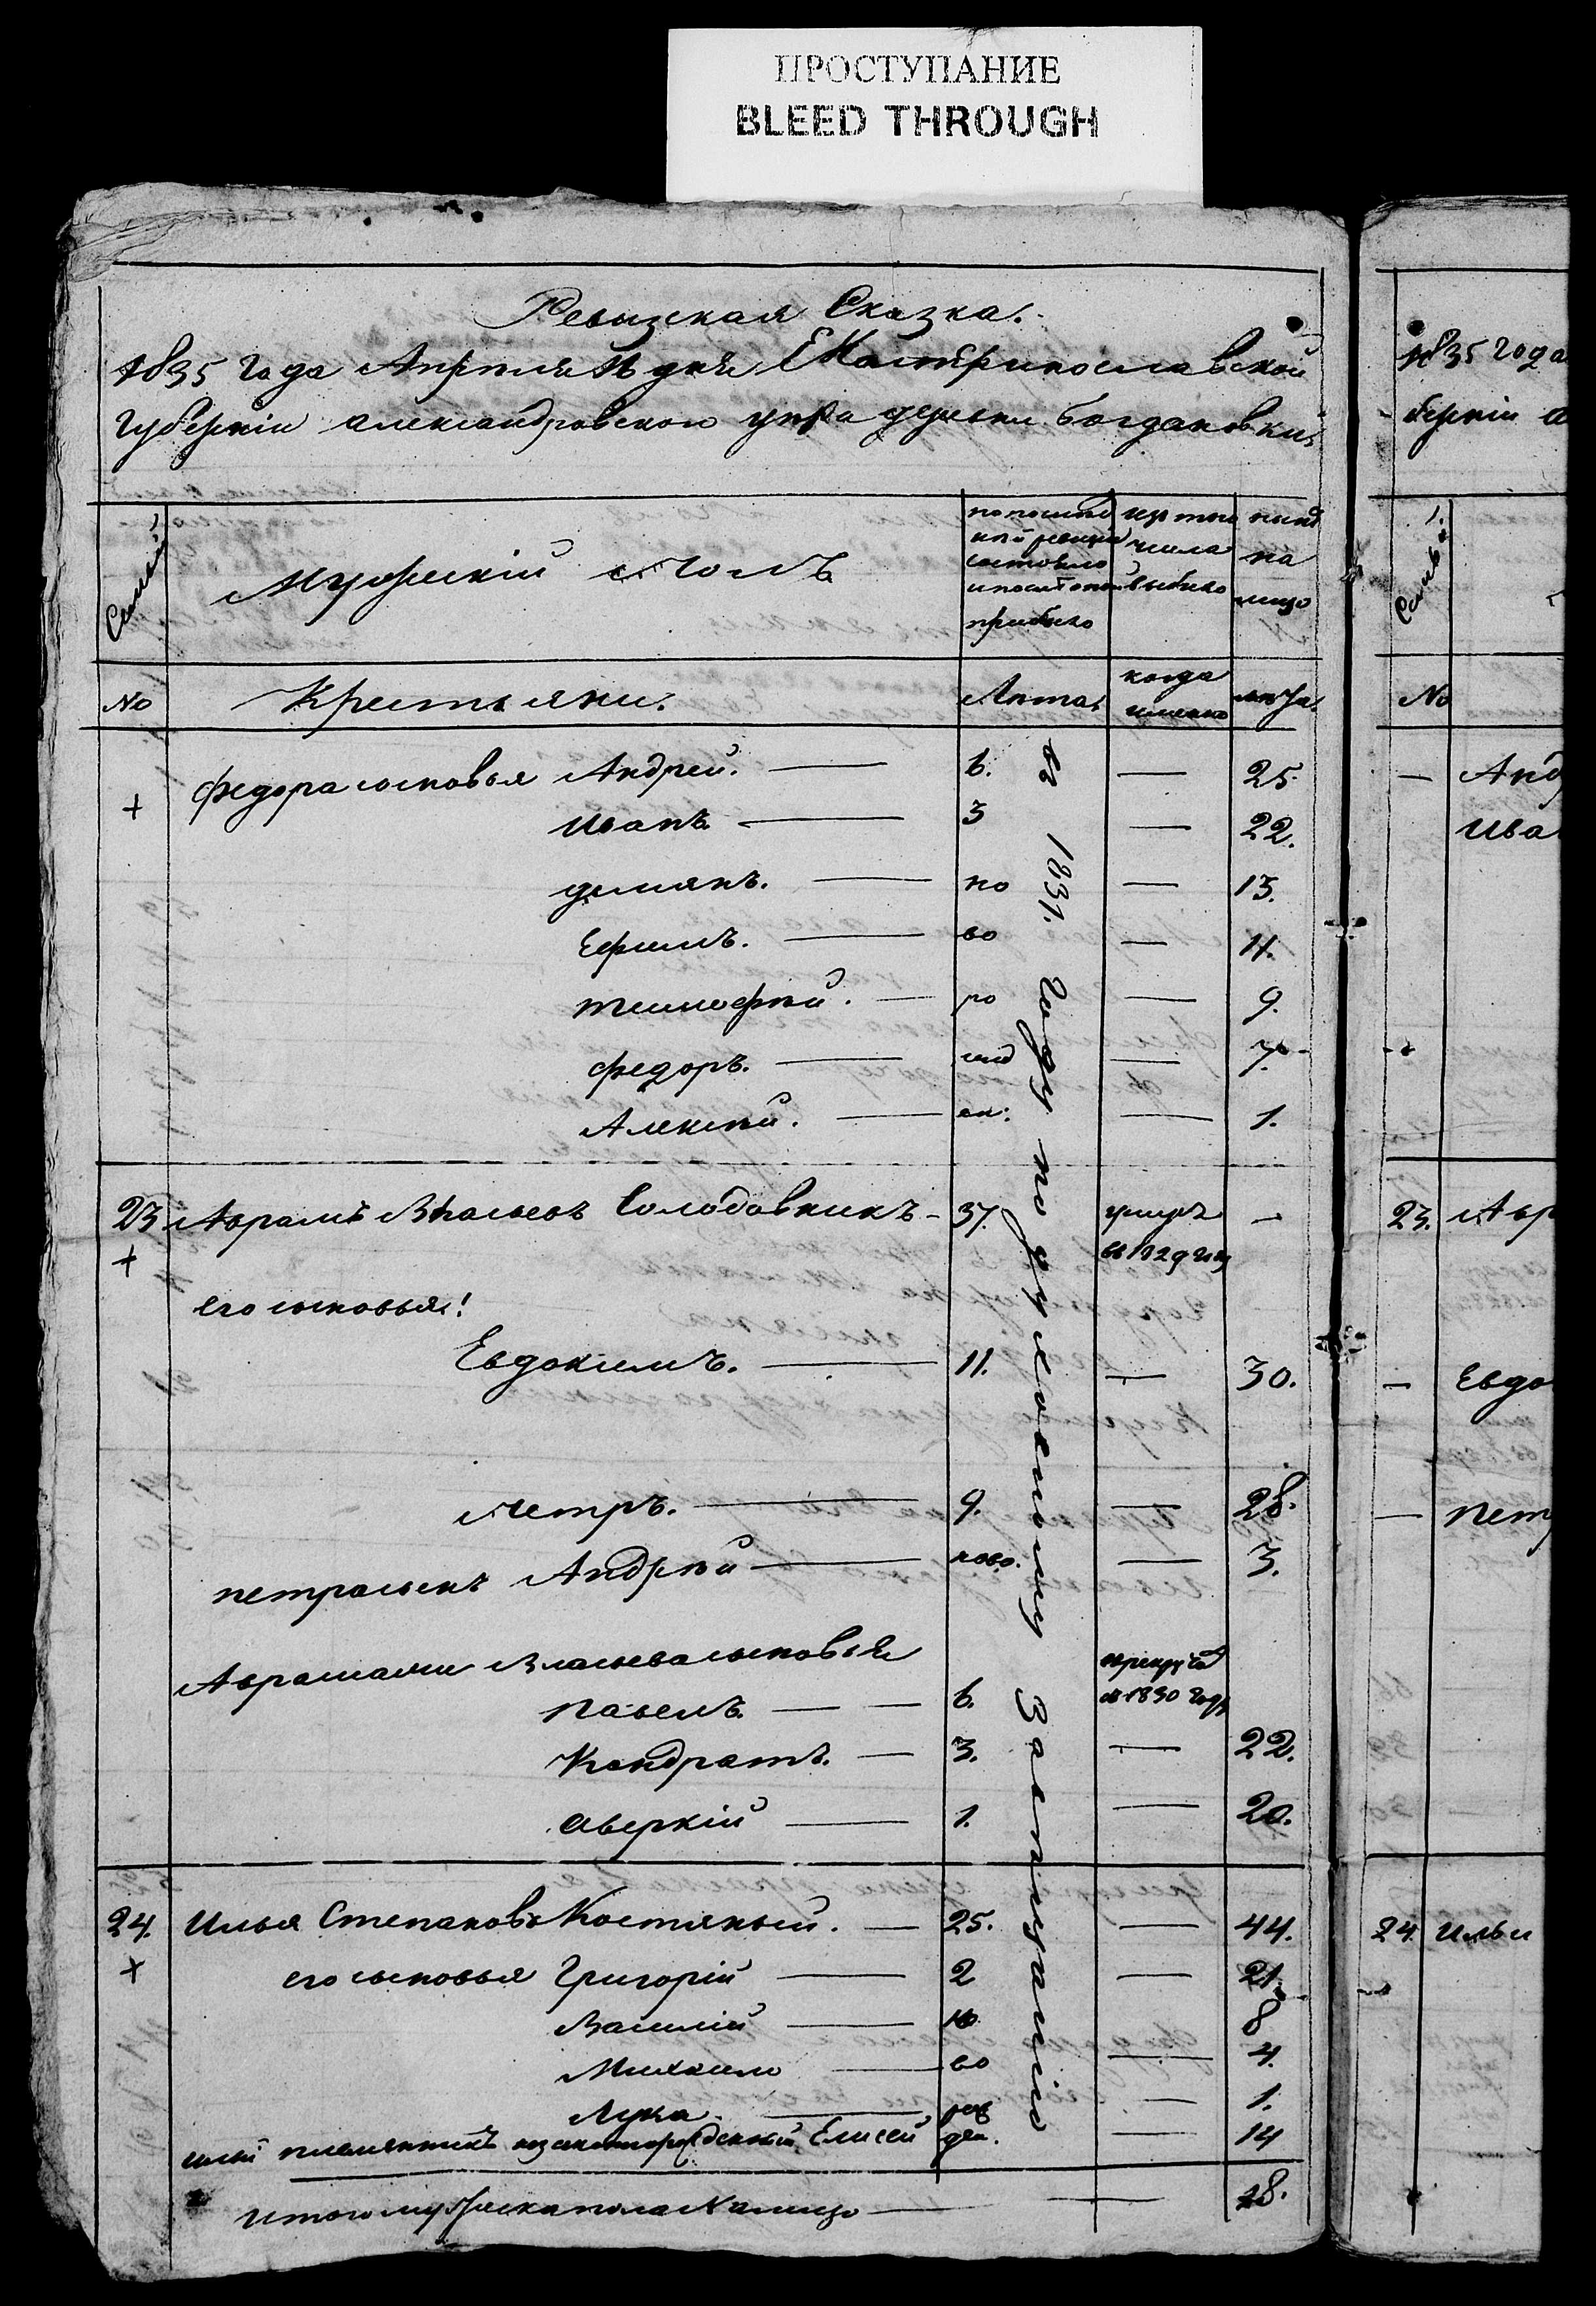 ПРОСТУПАНИЕ
BLEED THROUGH
Ревызская Сказка.
1835 года Апреля 16 дня Екатеринославской
Губернiи александровского уезда деревни богдановки,
Семьи.
мужескiй полъ
по послед
ней ревизiи
состояло
и после оной
прибыло
изъ того
числа
выбыло
ныне
на
лицо
No
Крестьяни.
Лета.
когда
именно
лета.
+
федора сыновья Андрей. — 6. — 25.
Иванъ — 3 — 22.
демянъ. — но — 13.
Ефимъ. — во — 11.
тимофей. — ро — 9.
федоръ. — — 7.
Алексей. — — 1.
въ 1831. году по дуелосному запущанiю
23. Аврамъ Власьевъ Солодовникъ — 37. умеръ —
въ 1829 году
+
его сыновья!
Евдокимъ. — 11. — 30.
Петръ. — 9. — 28.
петра сынъ Андрей — ново. — 3.
Аврамами Власьева сыновья
павелъ. — — 6. в 1830 году
Кондратъ. — 3. — 22.
аверкiй — 1. — 20.
24. Илья Степановъ Костяный. — 25. — 44.
+
его сыновья Григорiй — 2 — 21.
Василiй — но — 8
Михаило — во — 4.
Лука. — рож — 1.
ильи племянникъ незаконнорожденный Елисей ден. — 14
итого мужеска пола Налицо — — 28.
1835 года
бернiи а
Семьи.
No
— Анд
Ива
23. Авр
— Евдо
— пет
24 Ильи